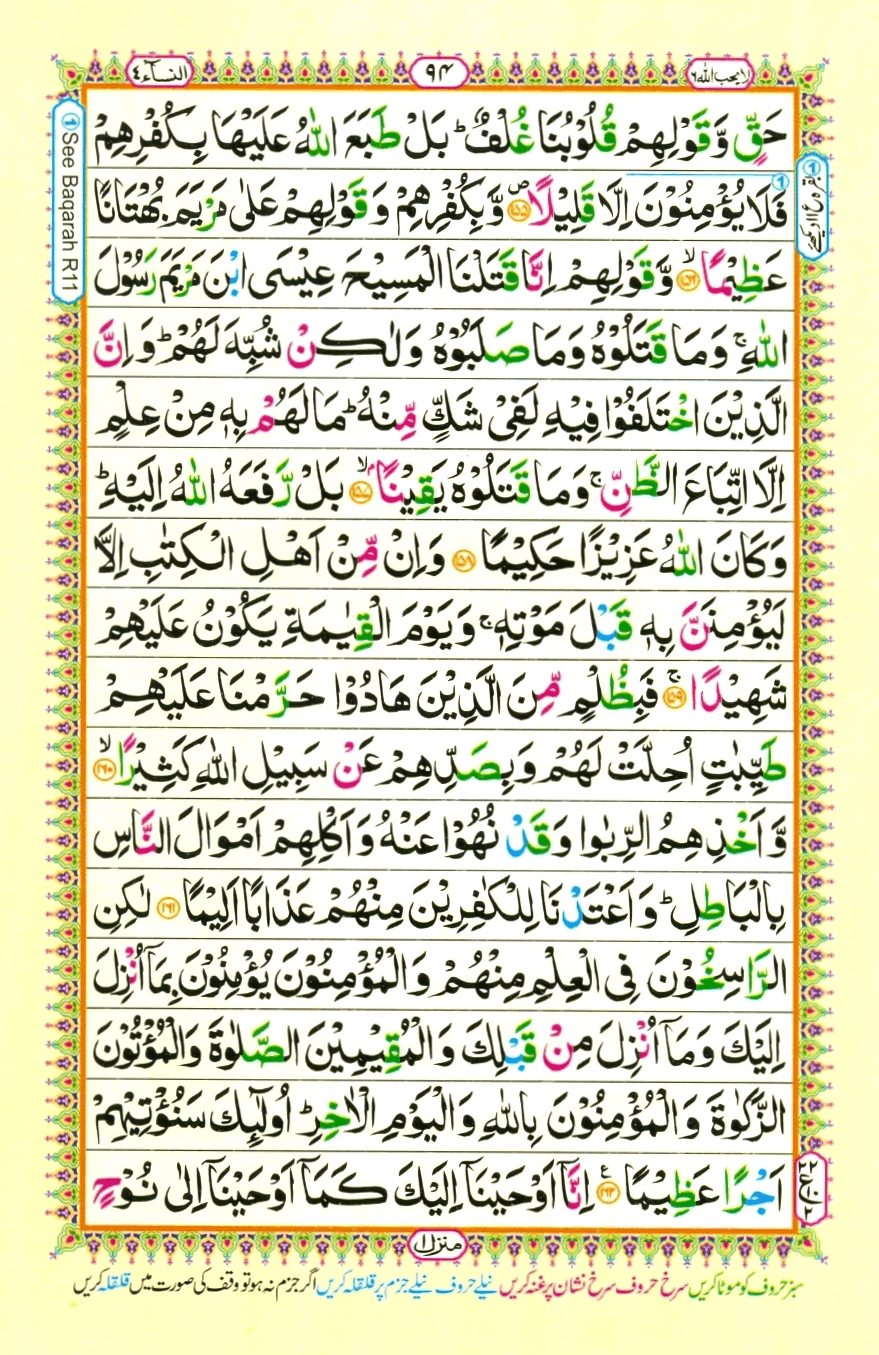 لا یحب اللہ ٦
٩٤
النساء ٤
حَقٍّ وَّقَوْلِهِمْ قُلُوْبُنَا غُلْفٌ ؕ بَلْ طَبَعَ اللّٰهُ عَلَیْهَا بِكُفْرِهِمْ
فَلَا یُؤْمِنُوْنَ اِلَّا قَلِیْلًا ۪﴿۱۵۵﴾ وَّ بِكُفْرِهِمْ وَ قَوْلِهِمْ عَلٰی مَرْیَمَ بُهْتَانًا
عَظِیْمًا ۙ﴿۱۵۶﴾ وَّ قَوْلِهِمْ اِنَّا قَتَلْنَا الْمَسِیْحَ عِیْسَی ابْنَ مَرْیَمَ رَسُوْلَ
اللّٰهِ ۚ وَمَا قَتَلُوْهُ وَمَا صَلَبُوْهُ وَلٰكِنْ شُبِّهَ لَهُمْ ؕ وَ اِنَّ
الَّذِیْنَ اخْتَلَفُوْا فِیْهِ لَفِیْ شَكٍّ مِّنْهُ ؕ مَا لَهُمْ بِهٖ مِنْ عِلْمٍ
اِلَّا اتِّبَاعَ الظَّنِّ ۚ وَمَا قَتَلُوْهُ یَقِیْنًۢا ۙ﴿۱۵۷﴾ بَلْ رَّفَعَهُ اللّٰهُ اِلَیْهِ ؕ
وَ كَانَ اللّٰهُ عَزِیْزًا حَكِیْمًا ﴿۱۵۸﴾ وَ اِنْ مِّنْ اَهْلِ الْكِتٰبِ اِلَّا
لَیُؤْمِنَنَّ بِهٖ قَبْلَ مَوْتِهٖ ۚ وَیَوْمَ الْقِیٰمَةِ یَكُوْنُ عَلَیْهِمْ
شَهِیْدًا ۚ﴿۱۵۹﴾ فَبِظُلْمٍ مِّنَ الَّذِیْنَ هَادُوْا حَرَّمْنَا عَلَیْهِمْ
طَیِّبٰتٍ اُحِلَّتْ لَهُمْ وَبِصَدِّهِمْ عَنْ سَبِیْلِ اللّٰهِ كَثِیْرًا ۙ﴿۱۶۰﴾
وَّ اَخْذِهِمُ الرِّبٰوا وَقَدْ نُهُوْا عَنْهُ وَ اَكْلِهِمْ اَمْوَالَ النَّاسِ
بِالْبَاطِلِ ؕ وَ اَعْتَدْنَا لِلْكٰفِرِیْنَ مِنْهُمْ عَذَابًا اَلِیْمًا ﴿۱۶۱﴾ لٰكِنِ
الرّٰسِخُوْنَ فِی الْعِلْمِ مِنْهُمْ وَ الْمُؤْمِنُوْنَ یُؤْمِنُوْنَ بِمَاۤ اُنْزِلَ
اِلَیْكَ وَ مَاۤ اُنْزِلَ مِنْ قَبْلِكَ وَ الْمُقِیْمِیْنَ الصَّلٰوةَ وَ الْمُؤْتُوْنَ
الزَّكٰوةَ وَ الْمُؤْمِنُوْنَ بِاللّٰهِ وَ الْیَوْمِ الْاٰخِرِ ؕ اُولٰٓئِكَ سَنُؤْتِیْهِمْ
اَجْرًا عَظِیْمًا ﴿۱۶۲﴾ اِنَّاۤ اَوْحَیْنَاۤ اِلَیْكَ كَمَاۤ اَوْحَیْنَاۤ اِلٰی نُوْحٍ
① See Baqarah R11
① بقرہ ع ۱۱ دیکھئے
۲۲
ع
۲
منزل ۱
سبز حروف کو موٹا کریں سرخ حروف سرخ نشان پر غنہ کریں نیلے حروف نیلے جزم پر قلقلہ کریں اگر جزم نہ ہو تو وقف کی صورت میں قلقلہ کریں